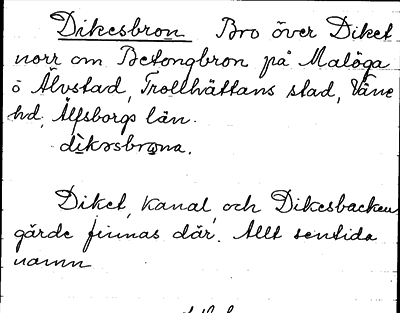 Dikesbron Bro över Diket
norr om Betongbron på Malöga
ö Älvstad, Trollhättans stad, Väne
hd, Älfsborgs län.
dìkəsbrǫna.
Diket, kanal, och Dikesbacken,
gärde finnas där. Allt sentida
namn